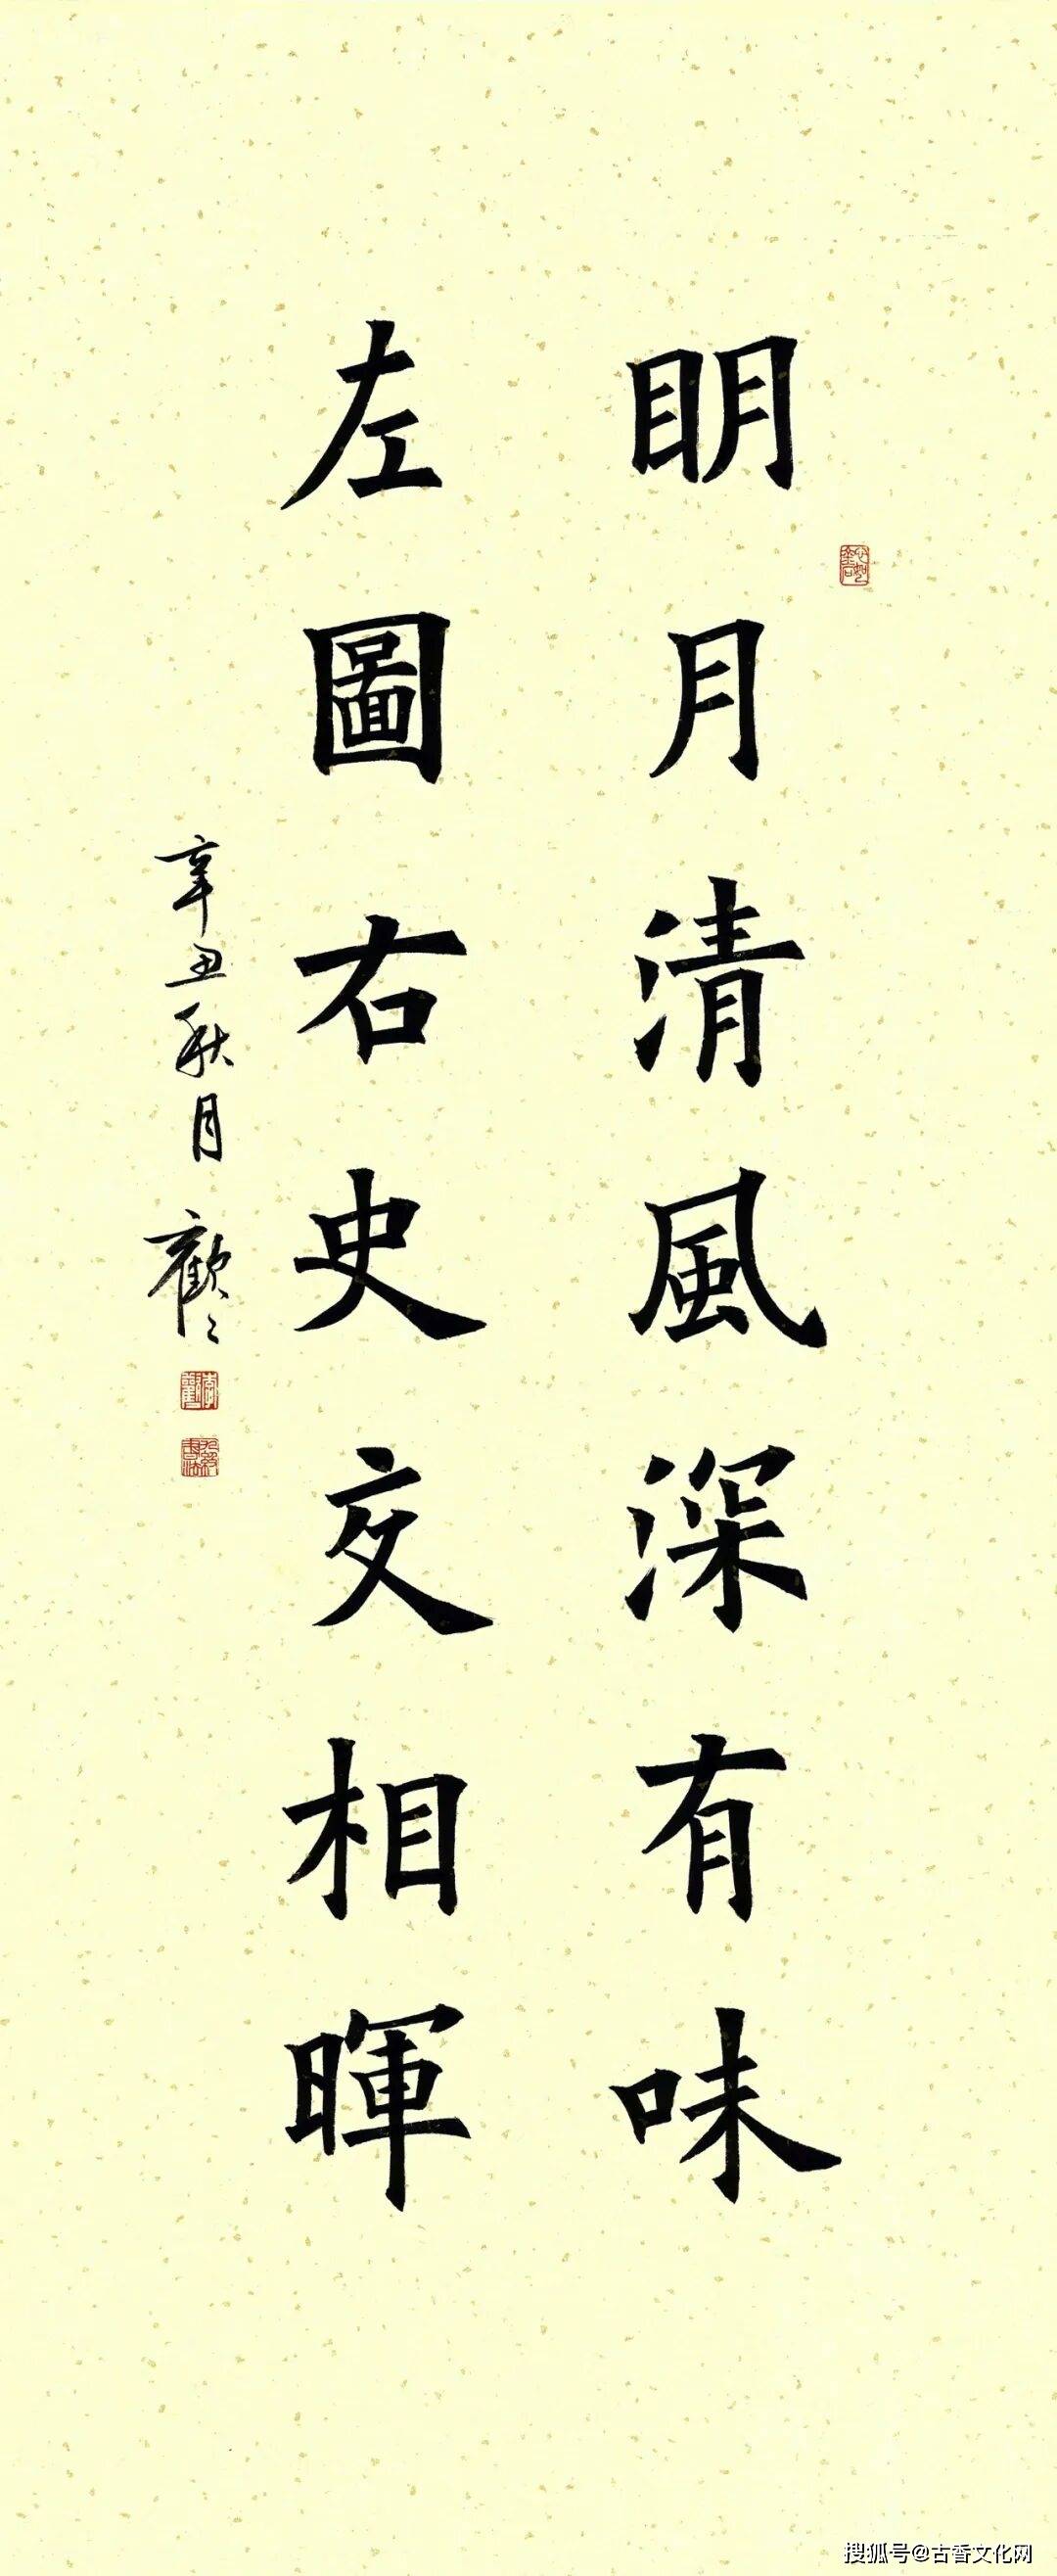 眀月清風深有味
左圖右史交相暉
辛丑秋月 歡〻
搜狐号@古香文化网